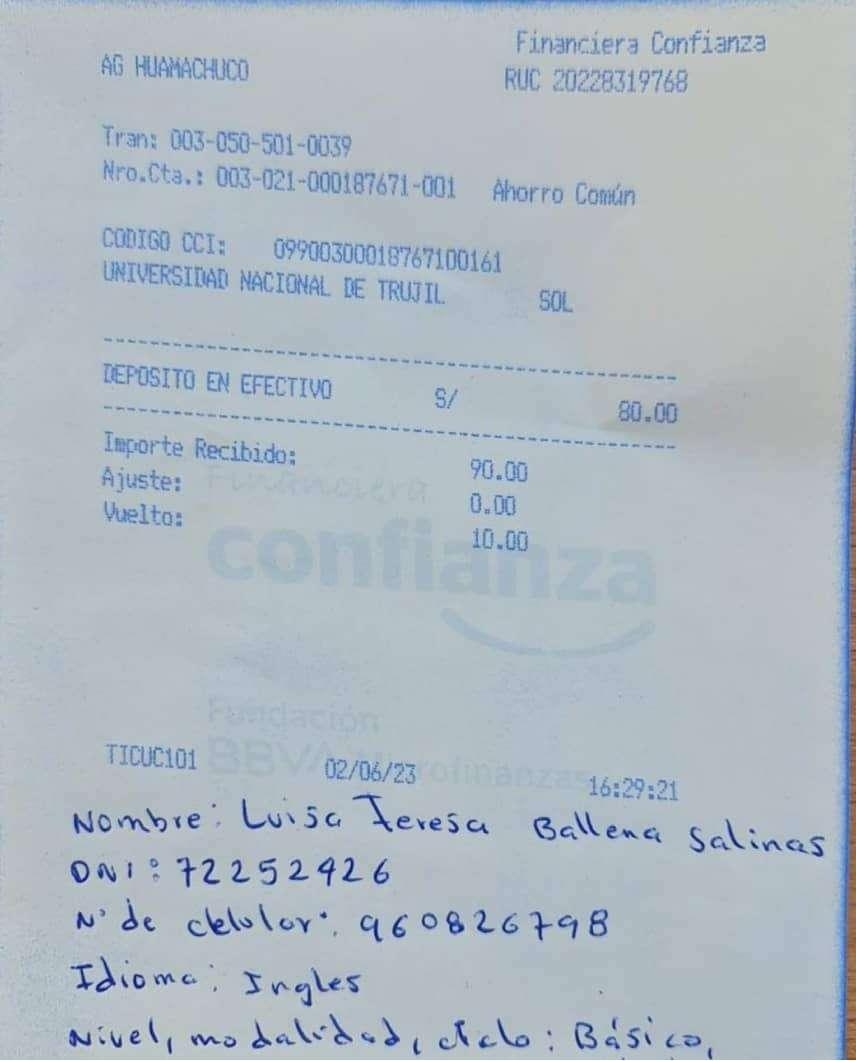 Financiera Confianza
AG HUAMACHUCO
RUC 20228319768
Tran: 003-050-501-0039
Nro.Cta.: 003-021-000187671-001 Ahorro Común
CODIGO CCI: 09900300018767100161
UNIVERSIDAD NACIONAL DE TRUJIL SOL
DEPOSITO EN EFECTIVO S/ 80.00
Importe Recibido: 90.00
Ajuste: 0.00
Vuelto: 10.00
Financiera
confianza
Fundación
BBVA Microfinanzas
TICUC101 02/06/23 16:29:21
Nombre: Luisa Teresa Ballena Salinas
DNI: 72252426
N° de celular: 960826798
Idioma: Ingles
Nivel, modalidad, ciclo: Básico,